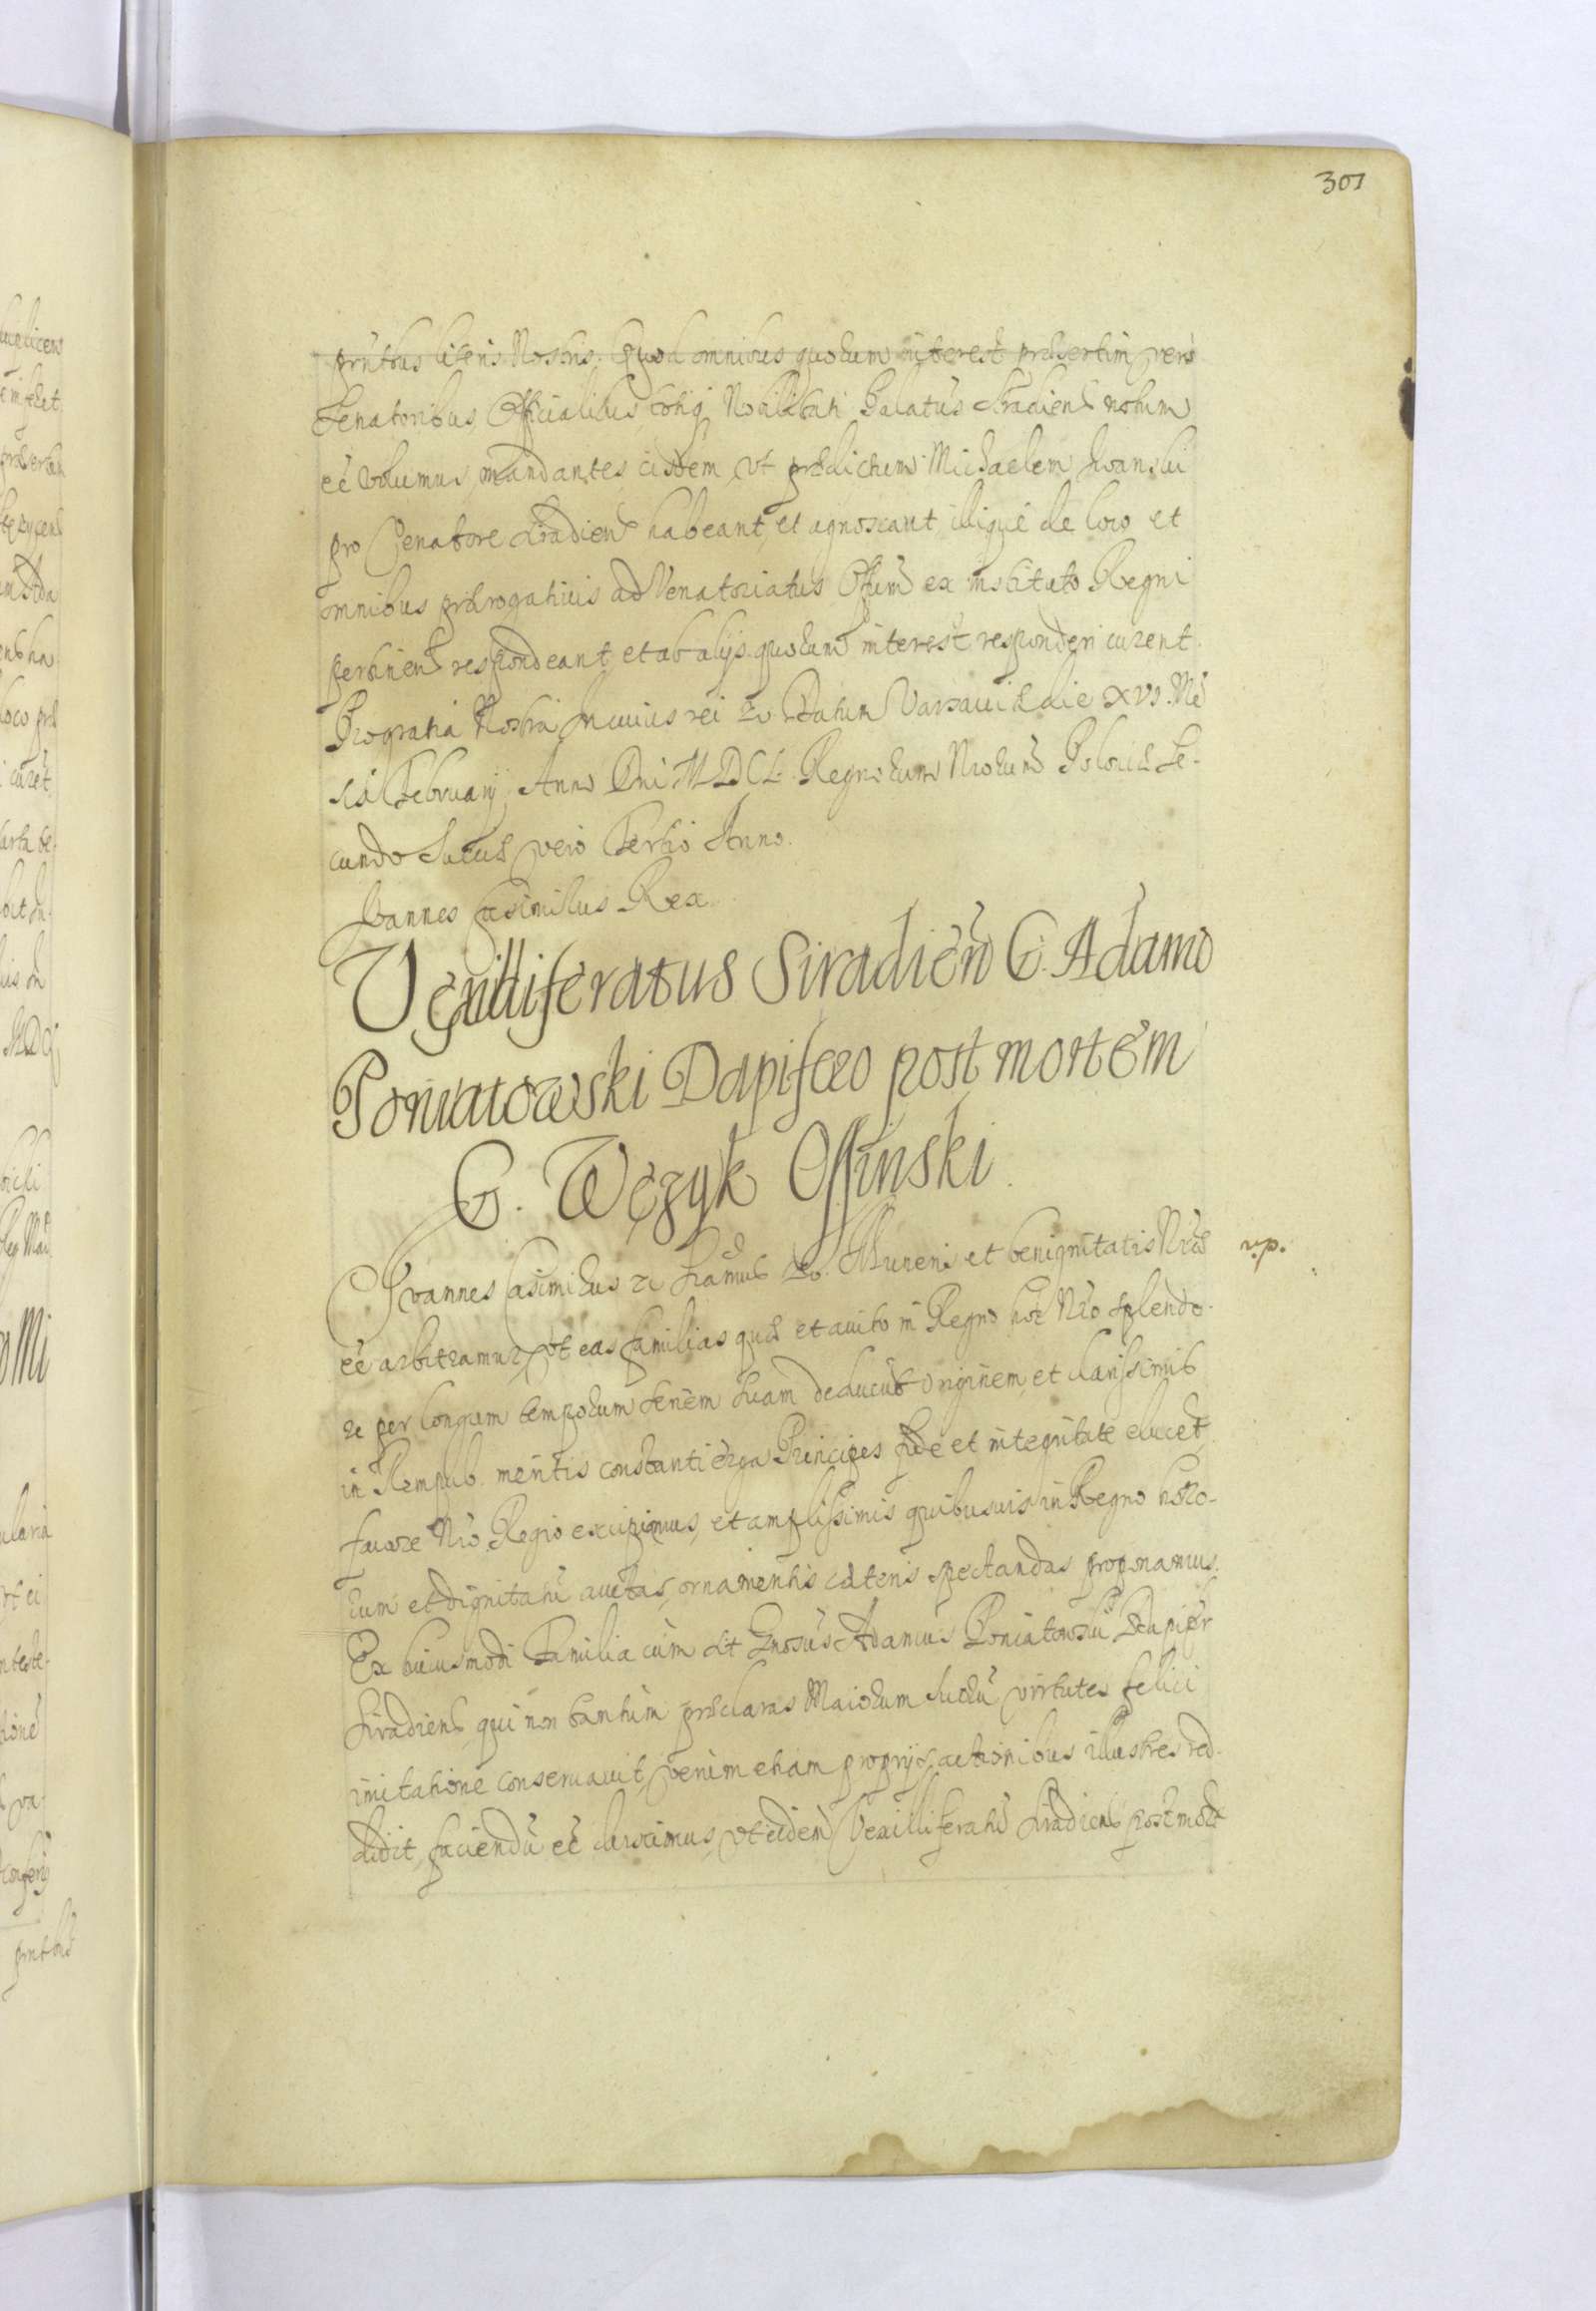 301
prntbus literis Nostris. Quod omnibus quorum interest præsertim vero
Senatoribus, Officialibus, totiq Nobilitati Palatus Siradien notum
eē volumus, mandantes eisdem, vt prædictum Michaelem
pro Venatore Siradien habeant, et agnoscant, illique de loco et
omnibus prærogatiuis ad Venatoriatus Offum ex instituto Regni
pertinen respondeant, et ab alijs quorum interest responderi curent.
Pro gratia Nostra In cuius rei Datum Varsauiæ die XVI. Mē
sis February Anno Dni MDCL. Regnorum Nrorum Poloniæ Se-
cundo Suetiæ vero Tertio Anno.
Ioannes Casimirus Rex
Vexilliferatus Siradien G. Adamo
Poniatowski Dapifero post mortem
G. Wężyk Osinski.
Ioannes Casimirus Muneris et benignitatis Nræ
r.p.
eē arbitramur, vt eas familias quæ et auito in Regno hoc Nro splendo-
re per longum temporum seriem suam deducūt originem, et clarissimis
in Rempub. meritis constanti erga Principes fide et integritate elucēt,
fauore Nro Regio excipiamus, et amplissimis quibusuis in Regno hono-
rum et dignitatū auctas ornamentis cæteris spectandas proponamus.
Ex huiusmodi Familia cum sit Gnosus Adamus Poniatowski Dapifer
Siradien, qui non tantum præclaras Maiorum suorū virtutes felici
imitatione conseruauit, verum etiam proprijs actionibus illustres red-
didit, faciendū eē duximus, vt eidem Vexilliferatū Siradien post mort